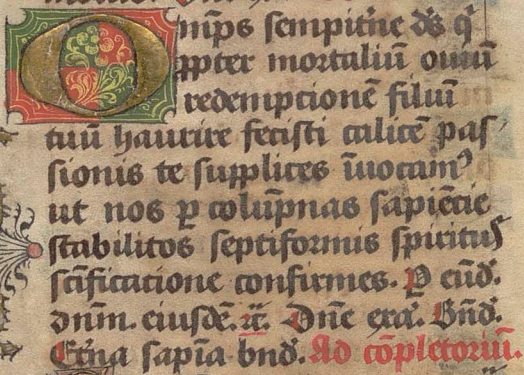 Omps sempit'ne ds q
ppter mortaliū oīniū
redempcionē filiū
tuū haurire fecisti calicē pas
sionis te supplices īuocam9
ut nos p colūpnas sapiēcie
stabilitos septiformis spiritus
scīficacione confirmes. P eūd.
dnm. eiusdē. rc. Dne exa. Bnd.
Etna sapīa bnd. Ad cōpletoriū.